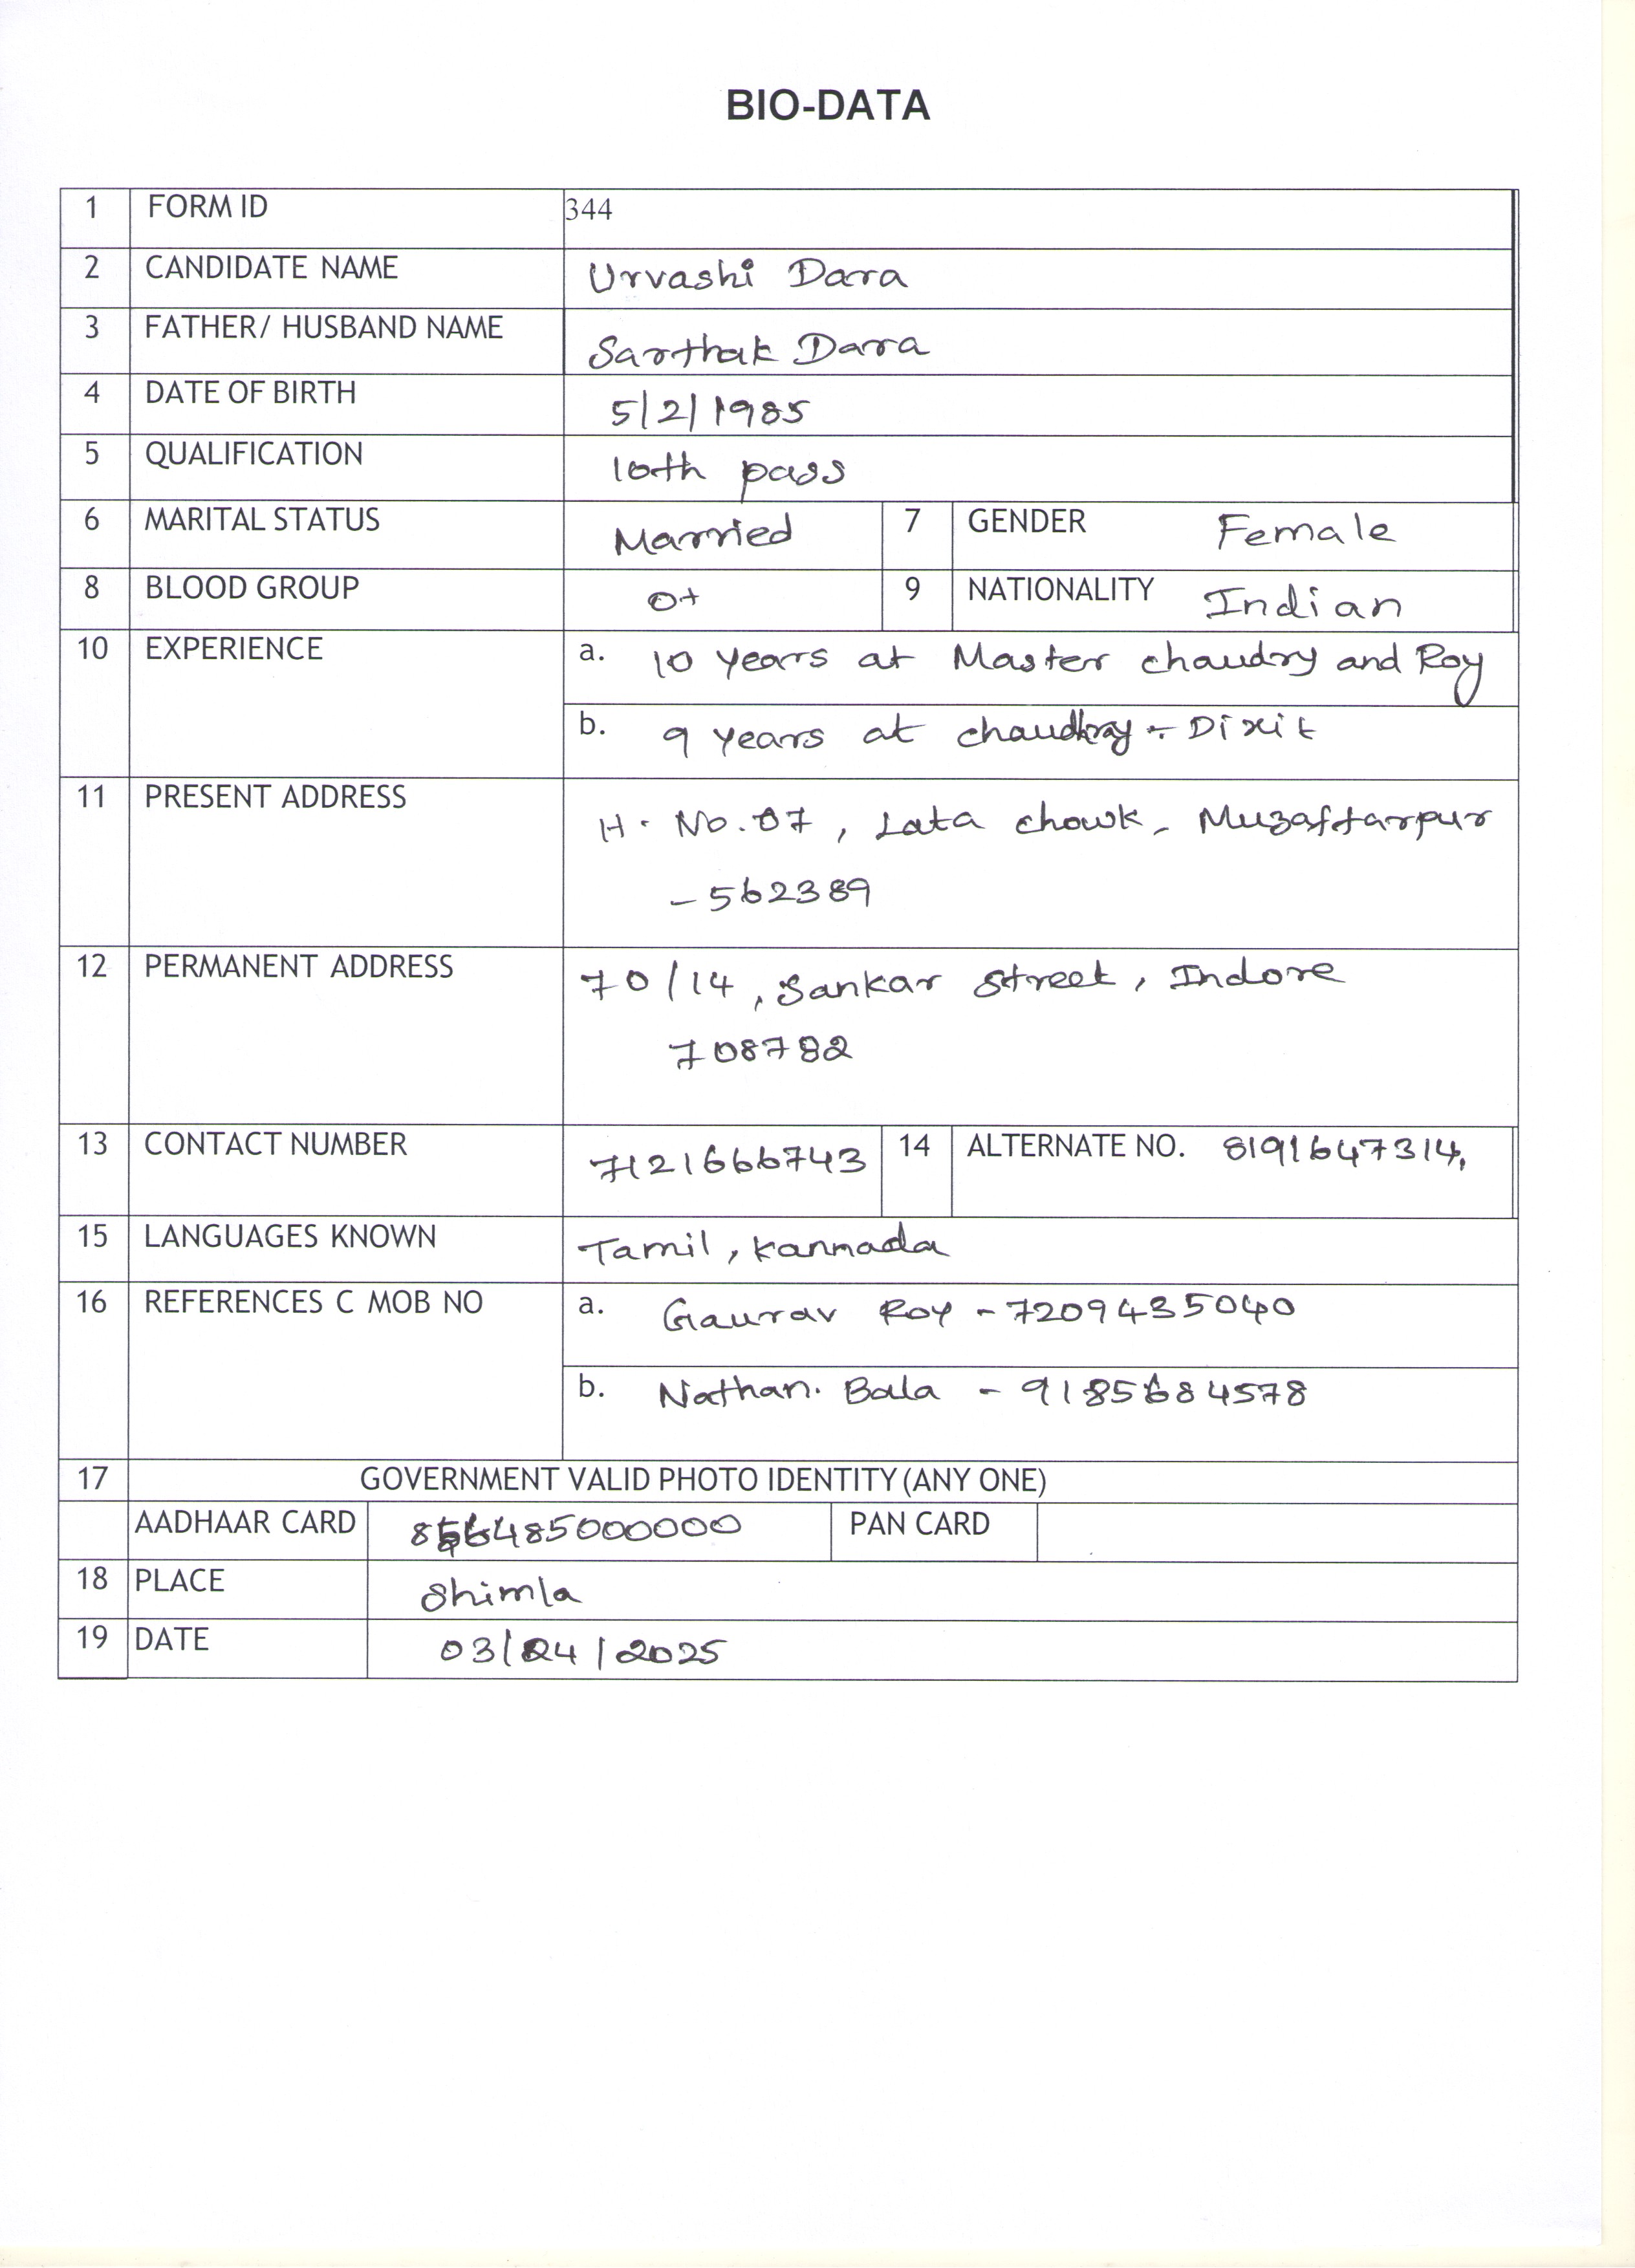 BIO-DATA
1 FORM ID 344
2 CANDIDATE NAME Urvashi Dara
3 FATHER/ HUSBAND NAME Sarthak Dara
4 DATE OF BIRTH 5/2/1985
5 QUALIFICATION 10th pass
6 MARITAL STATUS Married 7 GENDER Female
8 BLOOD GROUP O+ 9 NATIONALITY Indian
10 EXPERIENCE a. 10 years at Master chaudry and Roy
b. 9 years at chaudhry - Dixit
11 PRESENT ADDRESS H. No. 07, Lata chowk - Muzaffarpur
- 562389
12 PERMANENT ADDRESS 70/14, Sankar Street, Indore
708782
13 CONTACT NUMBER 7121666743 14 ALTERNATE NO. 8191647314,
15 LANGUAGES KNOWN Tamil, kannada
16 REFERENCES C MOB NO a. Gaurav Roy - 7209435040
b. Nathan. Bala - 9185684578
17 GOVERNMENT VALID PHOTO IDENTITY (ANY ONE)
AADHAAR CARD PAN CARD
18 PLACE Shimla
19 DATE 03/24/2025